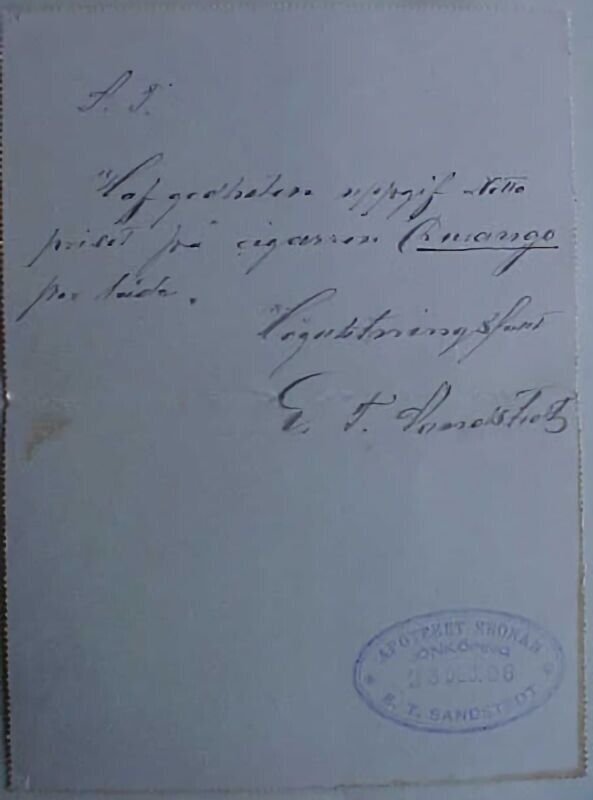 S. T.
Haf godheten uppgif Netto
priset på cigarren
per låda.
Högaktningsfullt
E. T. Sandstedt
APOTEKET KRONAN
JÖNKÖPING
23 DEC. 98
E. T. SANDSTEDT.